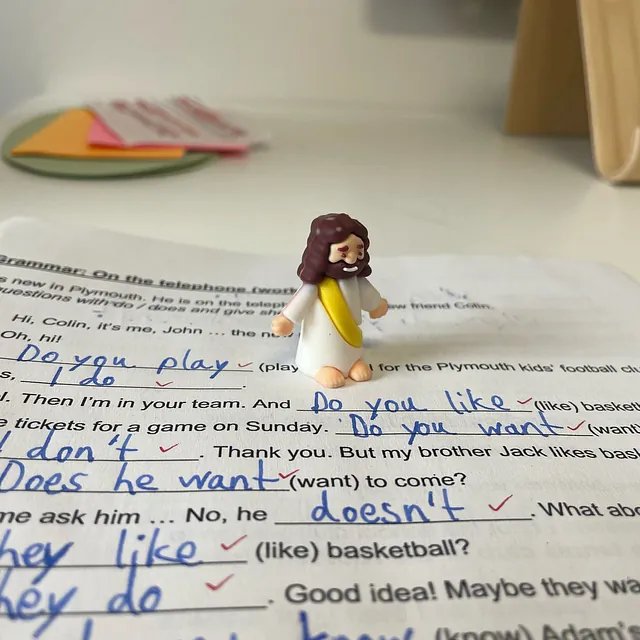 Grammar: On the telephone
s new in Plymouth. He is on the telep w friend Colin.
questions with do / does and give sh
Hi, Colin, it's me, John ... the n
Oh, hi!
Do you play (play for the Plymouth kids' football clu
s, I do.
l. Then I'm in your team. And Do you like (like) basket
e tickets for a game on Sunday. Do you want (want
I don't. Thank you. But my brother Jack likes bas
Does he want (want) to come?
me ask him ... No, he doesn't. What abo
hey like (like) basketball?
hey do. Good idea! Maybe they wa
know (know) Adam's